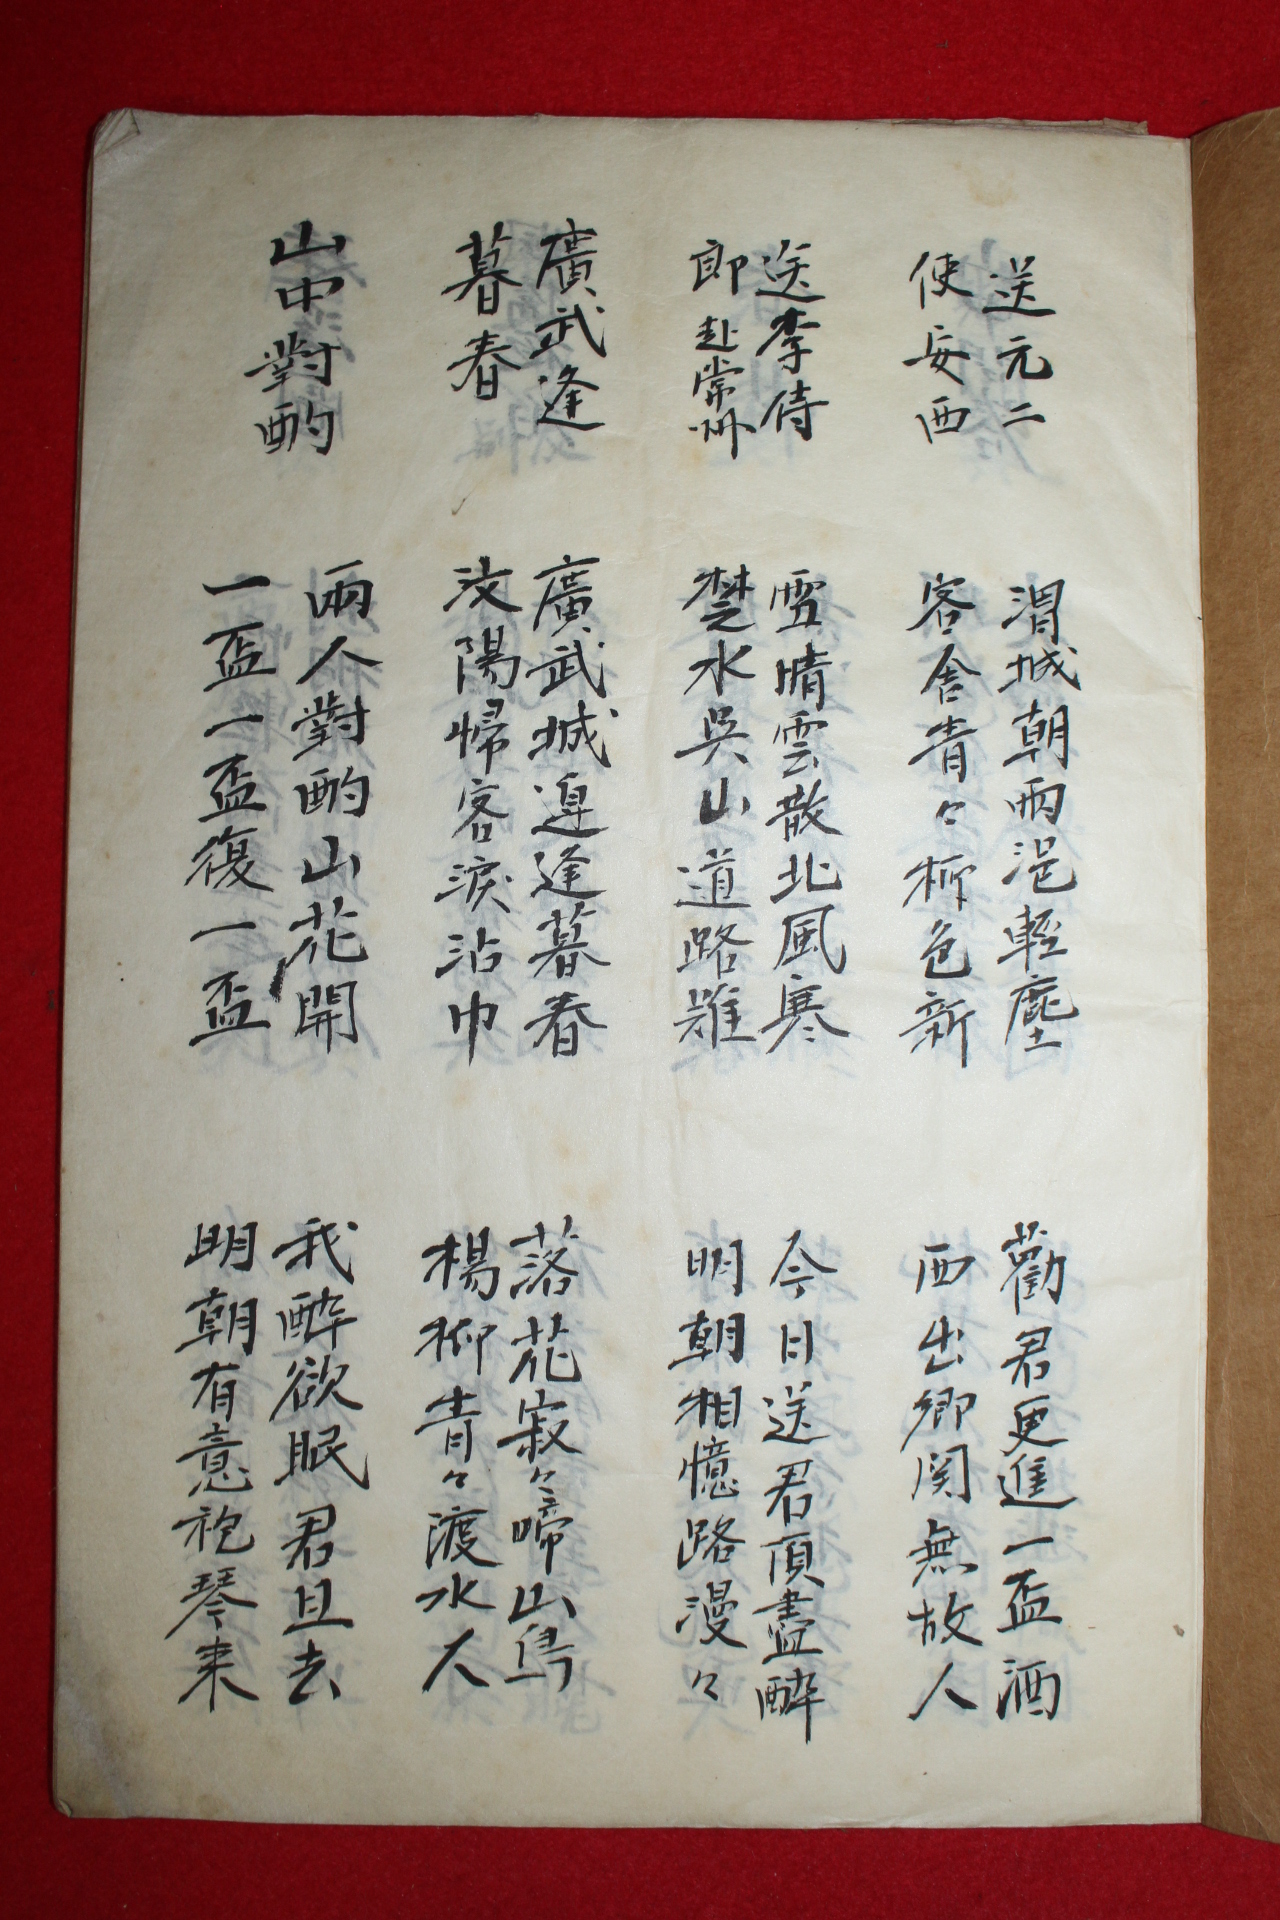 送元二
使安西
渭城朝雨浥輕塵
客舍青々柳色新
勸君更進一盃酒
西出鄉関無故人
送李侍
郎赴常州
雪晴雲散北風寒
楚水吳山道路難
今日送君須盡醉
明朝相憶路漫々
廣武逢
暮春
廣武城邉逢暮春
汶陽帰客淚沾巾
落花寂々啼山鳥
楊柳青々渡水人
山中對酌
兩人對酌山花開
一盃一盃復一盃
我醉欲眠君且去
明朝有意袍琴来